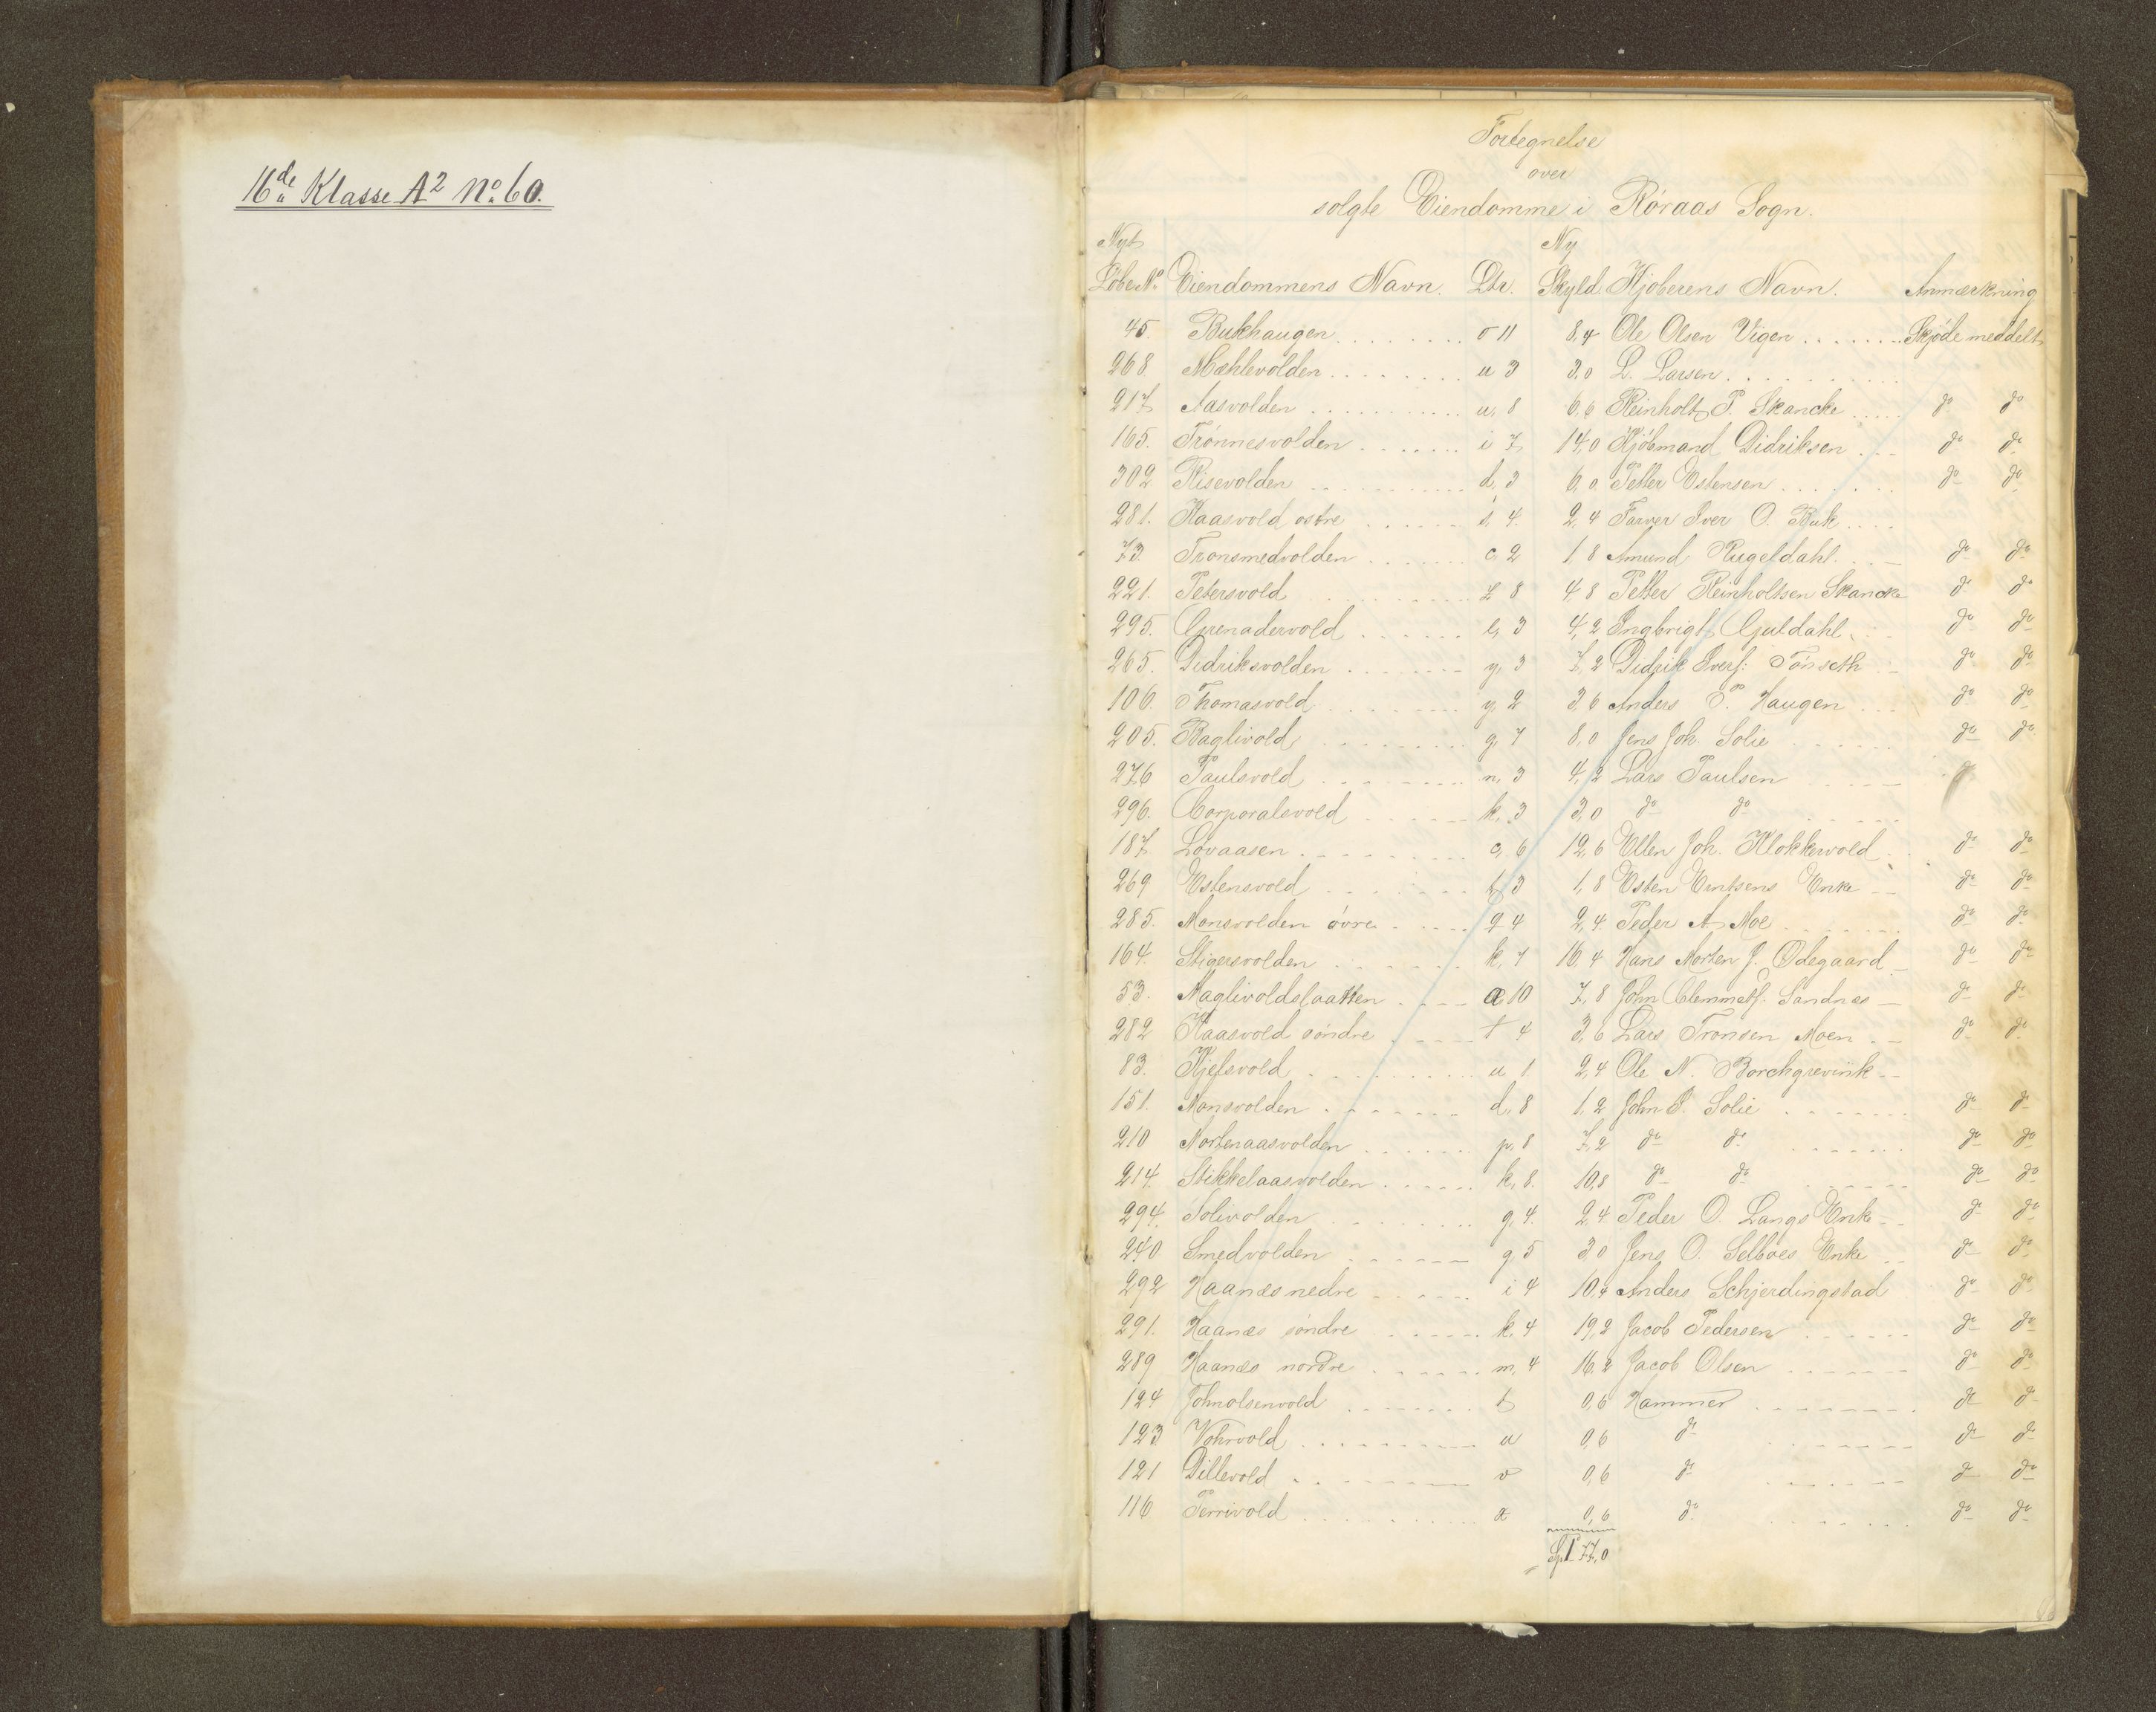 16de Klasse A2 No. 60.
Fortegnelse
over
solgte Eiendomme i Røraas Sogn.
Nyt Ny
Løbe No Eiendommens Navn. Ltr. Skyld. Kjøberens Navn. Anmærkning
45. Bukhaugen ........ o 11 8,4 Ole Olsen Vigen ....... Skjøde meddelt
268 Mæhlevolden ....... u 3 3,0 L. Larsen ...........
217 Aasvolden ........... u, 8 6,6 Reinholt P. Skancke ..... do do
165. Trönnesvolden ....... i 7, 14,0 Kjöbmand Didriksen ... do do
302 Risevolden ........... d, 3 6,0 Petter Estensen ....... do do
281. Kaasvold østre ...... 4. 2,4 Farver Iver O. Buk ....
73. Tronsmedvolden ...... c, 2 1 8 Amund Rugeldahl ... do do
221. Petersvold .......... z 8 4 8 Petter Reinholtsen Skancke do do
295. Grenadervold ...... l, 3 4,2 Ingbrigt Guldahl ... do do
265. Didriksvolden ....... y, 3 7,2 Didrik Iversf: Tönseth - do do
106. Thomasvold ....... y 2 3 6 Anders P. Haugen ... do do
205. Baglivold ......... q, 7 8,0 Jens Joh. Solie ...... do do
276 Paulsvold ......... n, 3 4,2 Lars Paulsen .....
296. Corporalsvold ..... k, 3 3,0 do do .....
187. Lövaasen ......... c, 6 12,6 Ellen Joh. Klokkervold .. do do
269 Estensvold ........ t, 3 1,8 Esten Eentsens Enke -- do do
285. Monsvolden övre ..... q 4 2,4 Peder A. Moe ....... do do
164. Stigersvolden ....... k, 7 16,4 Hans Morten J. Ödegaard - do do
53. Maglivoldslaatten .... æ 10 7,8 John Clemmetsf. Sandnæs - do do
282 Kaasvold söndre .... t 4 3,6 Lars Tronsen Moen .- do do
83. Kjelsvold .......... u 1 2,4 Ole N. Borchgrevink --
151. Monsvolden ....... d, 8 1,2 John P. Solie ....... do do
210 Mortenaasvolden ....... p, 8 7,2 do do ....... do do
214. Stikkelaasvolden ...... k, 8. 10,8 do do ...... do do
294. Solivolden ........ q, 4. 2,4 Peder O. Langs Enke -- do do
240 Smedvolden ....... q 5 3 0 Jens O. Selboes Enke .. do do
292 Haanæs nedre ...... i 4 10,4 Anders Schjerdingstad do do
291. Haanæs söndre ...... k, 4 19,2 Jacob Pedersen ...... do do
289 Haanæs nordre ....... m, 4 16,2 Jacob Olsen ...... do do
124 Johnolsenvold ....... t 0,6 Hammer ......... do do
123 Vohrvold .......... u 0,6 do ....... do do
121 Dillevold ......... v 0,6 do ...... do do
116 Perrivold .......... x 0,6 do ....... do do
Sp 177,0